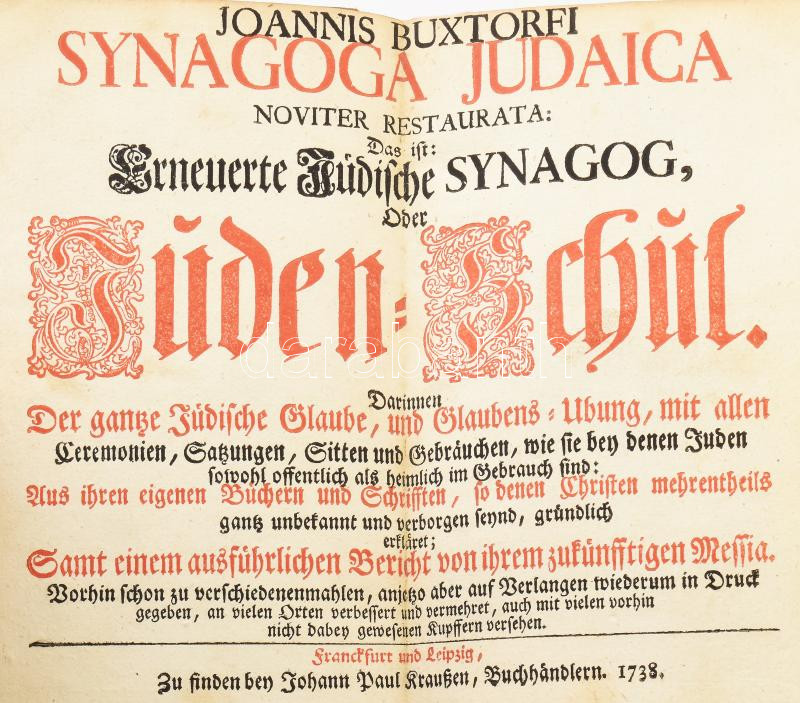 JOANNIS BUXTORFI
SYNAGOGA JUDAICA
NOVITER RESTAURATA:
Das ist:
Erneuerte Jüdische SYNAGOG,
Oder
Jüden-Schül.
Darinnen
Der gantze Jüdische Glaube, und Glaubens-Ubung, mit allen
Ceremonien, Satzungen, Sitten und Gebräuchen, wie sie bey denen Juden
sowohl offentlich als heimlich im Gebrauch sind:
Aus ihren eigenen Büchern und Schrifften, so denen Christen mehrentheils
gantz unbekannt und verborgen seynd, gründlich
erkläret;
Samt einem ausführlichen Bericht von ihrem zukünfftigen Messia.
Vorhin schon zu verschiedenenmahlen, anjetzo aber auf Verlangen wiederum in Druck
gegeben, an vielen Orten verbessert und vermehret, auch mit vielen vorhin
nicht dabey gewesenen Kupffern versehen.
Franckfurt und Leipzig,
Zu finden bey Johann Paul Kraußen, Buchhändlern. 1738.